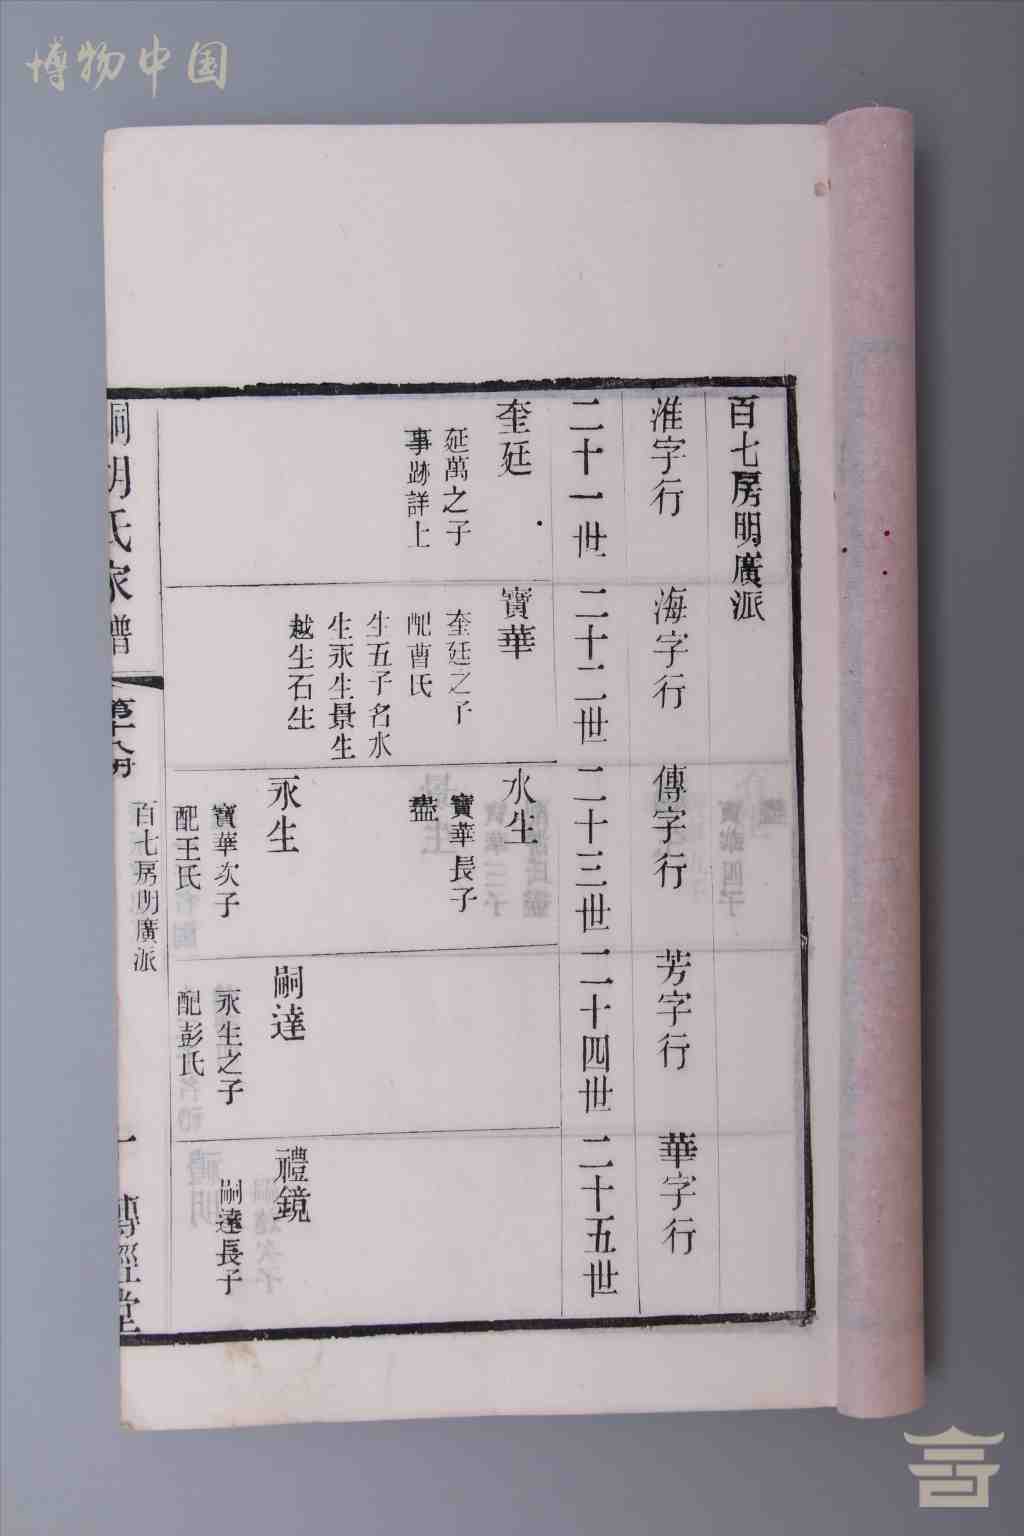 博物中国
百七房明廣派
淮字行
海字行
傳字行
芳字行
華字行
二十一世
二十二世
二十三世
二十四世
二十五世
奎廷
延萬之子
事跡詳上
寶華
奎廷之子
配曹氏
生五子名水
生永生景生
越生石生
水生
寶華長子
盡
永生
寶華次子
配王氏
嗣達
永生之子
配彭氏
禮鏡
嗣達長子
胡氏家譜
第十八册
百七房明廣派
一
傳經堂